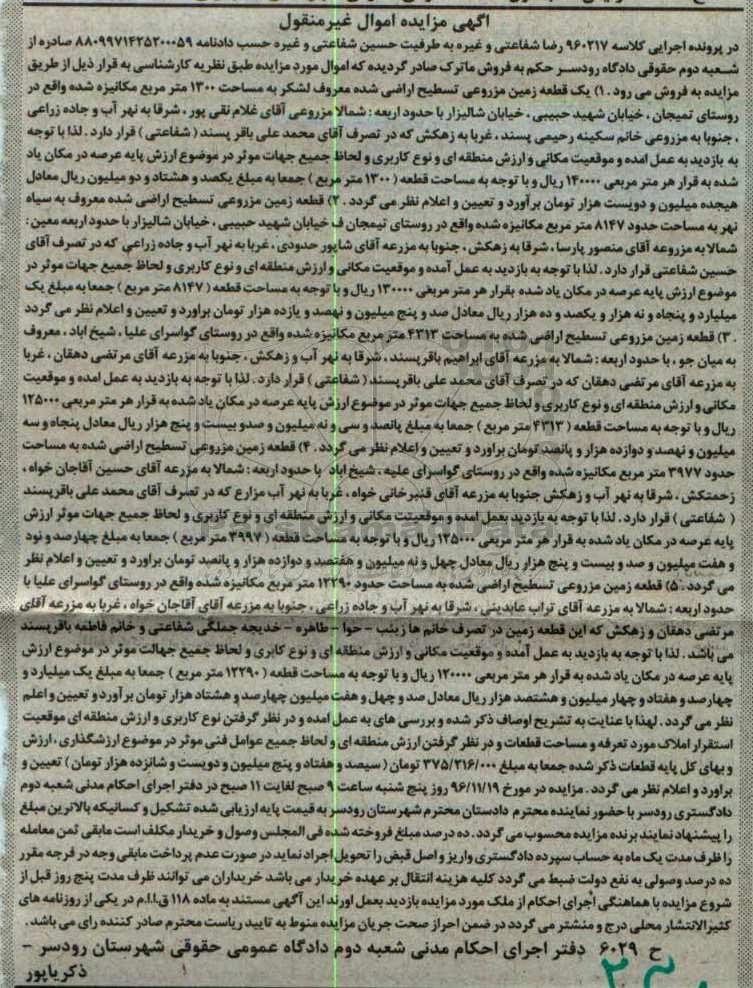 آگهی مزایده اموال غیرمنقول
در پرونده اجرایی کلاسه ۹۶۰۲۱۷ رضا شفاعتی و غیره به طرفیت حسین شفاعتی و غیره حسب دادنامه ۸۸۰۹۹۷۱۴۲۵۲۰۰۰۵۹ صادره از
شعبه دوم حقوقی دادگاه رودسر حکم به فروش ماترک صادر گردیده که اموال مورد مزایده طبق نظریه کارشناسی به قرار ذیل از طریق
مزایده به فروش می رود . ۱) یک قطعه زمین مزروعی تسطیح اراضی شده معروف لشکر به مساحت ۱۳۰۰ متر مربع مکانیزه شده واقع در
روستای تمیجان ، خیابان شهید حبیبی ، خیابان شالیزار با حدود اربعه : شمالا مزروعی آقای غلام نقی پور ، شرقا به نهر آب و جاده زراعی
، جنوبا به مزروعی خانم سکینه رحیمی پسند ، غربا به زهکش که در تصرف آقای محمد علی باقر پسند ( شفاعتی ) قرار دارد . لذا با توجه
به بازدید به عمل امده و موقعیت مکانی و ارزش منطقه ای و نوع کاربری و لحاظ جمیع جهات موثر در موضوع ارزش پایه عرصه در مکان یاد
شده به قرار هر متر مربعی ۱۴۰۰۰۰ ریال و با توجه به مساحت قطعه ( ۱۳۰۰ متر مربع ) جمعا به مبلغ یکصد و هشتاد و دو میلیون ریال معادل
هیجده میلیون و دویست هزار تومان برآورد و تعیین و اعلام نظر می گردد . ۲) قطعه زمین مزروعی تسطیح اراضی شده معروف به سیاه
نهر به مساحت حدود ۸۱۴۷ متر مربع مکانیزه شده واقع در روستای تیمجان ف خیابان شهید حبیبی ، خیابان شالیزار با حدود اربعه معین :
شمالا به مزروعه آقای منصور پارسا ، شرقا به زهکش ، جنوبا به مزرعه آقای شاپور حدودی ، غربا به نهر آب و جاده زراعی که در تصرف آقای
حسین شفاعتی قرار دارد . لذا با توجه به بازدید به عمل آمده و موقعیت مکانی و ارزش منطقه ای و نوع کاربری و لحاظ جمیع جهات موثر در
موضوع ارزش پایه عرصه در مکان یاد شده بقرار هر متر مربعی ۱۳۰۰۰۰ ریال و با توجه به مساحت قطعه ( ۸۱۴۷ متر مربع ) جمعا به مبلغ یک
میلیارد و پنجاه و نه هزار و یکصد و ده هزار ریال معادل صد و پنج میلیون و نهصد و یازده هزار تومان براورد و تعیین و اعلام نظر می گردد
. ۳) قطعه زمین مزروعی تسطیح اراضی شده به مساحت ۴۳۱۳ متر مربع مکانیزه شده واقع در روستای گواسرای علیا ، شیخ اباد ، معروف
به میان جو ، با حدود اربعه : شمالا به مزرعه آقای ابراهیم باقرپسند ، شرقا به نهر آب و زهکش ، جنوبا به مزرعه آقای مرتضی دهقان ، غربا
به مزرعه آقای مرتضی دهقان که در تصرف آقای محمد علی باقر پسند ( شفاعتی ) قرار دارد . لذا با توجه به بازدید به عمل امده و موقعیت
مکانی و ارزش منطقه ای و نوع کاربری و لحاظ جمیع جهات موثر در موضوع ارزش پایه عرصه در مکان یاد شده به قرار هر متر مربعی ۱۲۵۰۰۰
ریال و با توجه به مساحت قطعه ( ۴۳۱۳ متر مربع ) جمعا به مبلغ پانصد و سی و نه میلیون و صدو بیست و پنج هزار ریال معادل پنجاه و سه
میلیون و نهصد و دوازده هزار و پانصد تومان براورد و تعیین و اعلام نظر می گردد . ۴) قطعه زمین مزروعی تسطیح اراضی شده به مساحت
حدود ۳۹۷۷ متر مربع مکانیزه شده واقع در روستای گواسرای علیه ، شیخ اباد با حدود اربعه : شمالا به مزرعه آقای حسین آقاجان خواه ،
زحمتکش ، شرقا به نهر آب و زهکش جنوبا به مزرعه آقای قنبرخانی خواه ، غربا به نهر آب مزارع که در تصرف آقای محمد علی باقرپسند
( شفاعتی ) قرار دارد . لذا با توجه به بازدید بعمل امده و موقعیتت مکانی و ارزش منطقه ای و نوع کاربری و لحاظ جمیع جهات موثر ارزش
پایه عرصه در مکان یاد شده به قرار هر متر مربعی ۱۲۵۰۰۰ ریال و با توجه به مساحت قطعه ( ۳۹۹۷ متر مربع ) جمعا به مبلغ چهارصد و نود
و هفت میلیون و صد و بیست و پنج هزار ریال معادل چهل و نه میلیون و هفتصد و دوازده هزار و پانصد تومان براورد و تعیین و اعلام نظر
می گردد . ۵) قطعه زمین مزروعی تسطیح اراضی شده به مساحت حدود ۱۲۲۹۰ متر مربع مکانیزه شده واقع در روستای گواسرای علیا با
حدود اربعه : شمالا به مزرعه آقای تراب عابدینی ، شرقا به نهر آب و جاده زراعی ، جنوبا به مزرعه آقای آقاجان خواه ، غربا به مزرعه آقای
مرتضی دهقان و زهکش که این قطعه زمین در تصرف خانم ها زینب - حوا - طاهره - خدیجه جملگی شفاعتی و خانم فاطمه باقرپسند
می باشد . لذا با توجه به بازدید به عمل آمده و موقعیت مکانی و ارزش منطقه ای و نوع کابری و لحاظ جمیع جهالت موثر در موضوع ارزش
پایه عرصه در مکان یاد شده به قرار هر متر مربعی ۱۲۰۰۰۰ ریال و با توجه به مساحت قطعه ( ۱۲۲۹۰ متر مربع ) جمعا به مبلغ یک میلیارد و
چهارصد و هفتاد و چهار میلیون و هشتصد هزار ریال معادل صد و چهل و هفت میلیون چهارصد و هشتاد هزار تومان برآورد و تعیین و اعلم
نظر می گردد . لهذا با عنایت به تشریح اوصاف ذکر شده و بررسی های به عمل امده و در نظر گرفتن نوع کاربری و ارزش منطقه ای موقعیت
استقرار املاک مورد تعرفه و مساحت قطعات و در نظر گرفتن ارزش منطقه ای و لحاظ جمیع عوامل فنی موثر در موضوع ارزشگذاری ، ارزش
و بهای کل پایه قطعات ذکر شده جمعا به مبلغ ۳۷۵/۲۱۶/۰۰۰ تومان ( سیصد و هفتاد و پنج میلیون و دویست و شانزده هزار تومان ) تعیین و
براورد و اعلام نظر می گردد . مزایده در مورخ ۹۶/۱۱/۱۹ روز پنج شنبه ساعت ۹ صبح لغایت ۱۱ صبح در دفتر اجرای احکام مدنی شعبه دوم
دادگستری رودسر با حضور نماینده محترم دادستان محترم شهرستان رودسر به قیمت پایه ارزیابی شده تشکیل و کسانیکه بالاترین مبلغ
را پیشنهاد نمایند برنده مزایده محسوب می گردد . ده درصد مبلغ فروخته شده فی المجلس وصول و خریدار مکلف است مابقی ثمن معامله
را ظرف مدت یک ماه به حساب سپرده دادگستری واریز و اصل قبض را تحویل اجراد نماید در صورت عدم پرداخت مابقی وجه در فرجه مقرر
ده درصد وصولی به نفع دولت ضبط می گردد کلیه هزینه انتقال بر عهده خریدار می باشد خریداران می توانند ظرف مدت پنج روز قبل از
شروع مزایده با هماهنگی اجرای احکام از ملک مورد مزایده بازدید بعمل اورند این آگهی مستند به ماده ۱۱۸ ق.ا.ا.م در یکی از روزنامه های
کثیرالانتشار محلی درج و منشتر می گردد در ضمن احراز صحت جریان مزایده منوط به تایید ریاست محترم صادر کننده رای می باشد .
ح ۶۰۲۹ دفتر اجرای احکام مدنی شعبه دوم دادگاه عمومی حقوقی شهرستان رودسر -
ذکریاپور